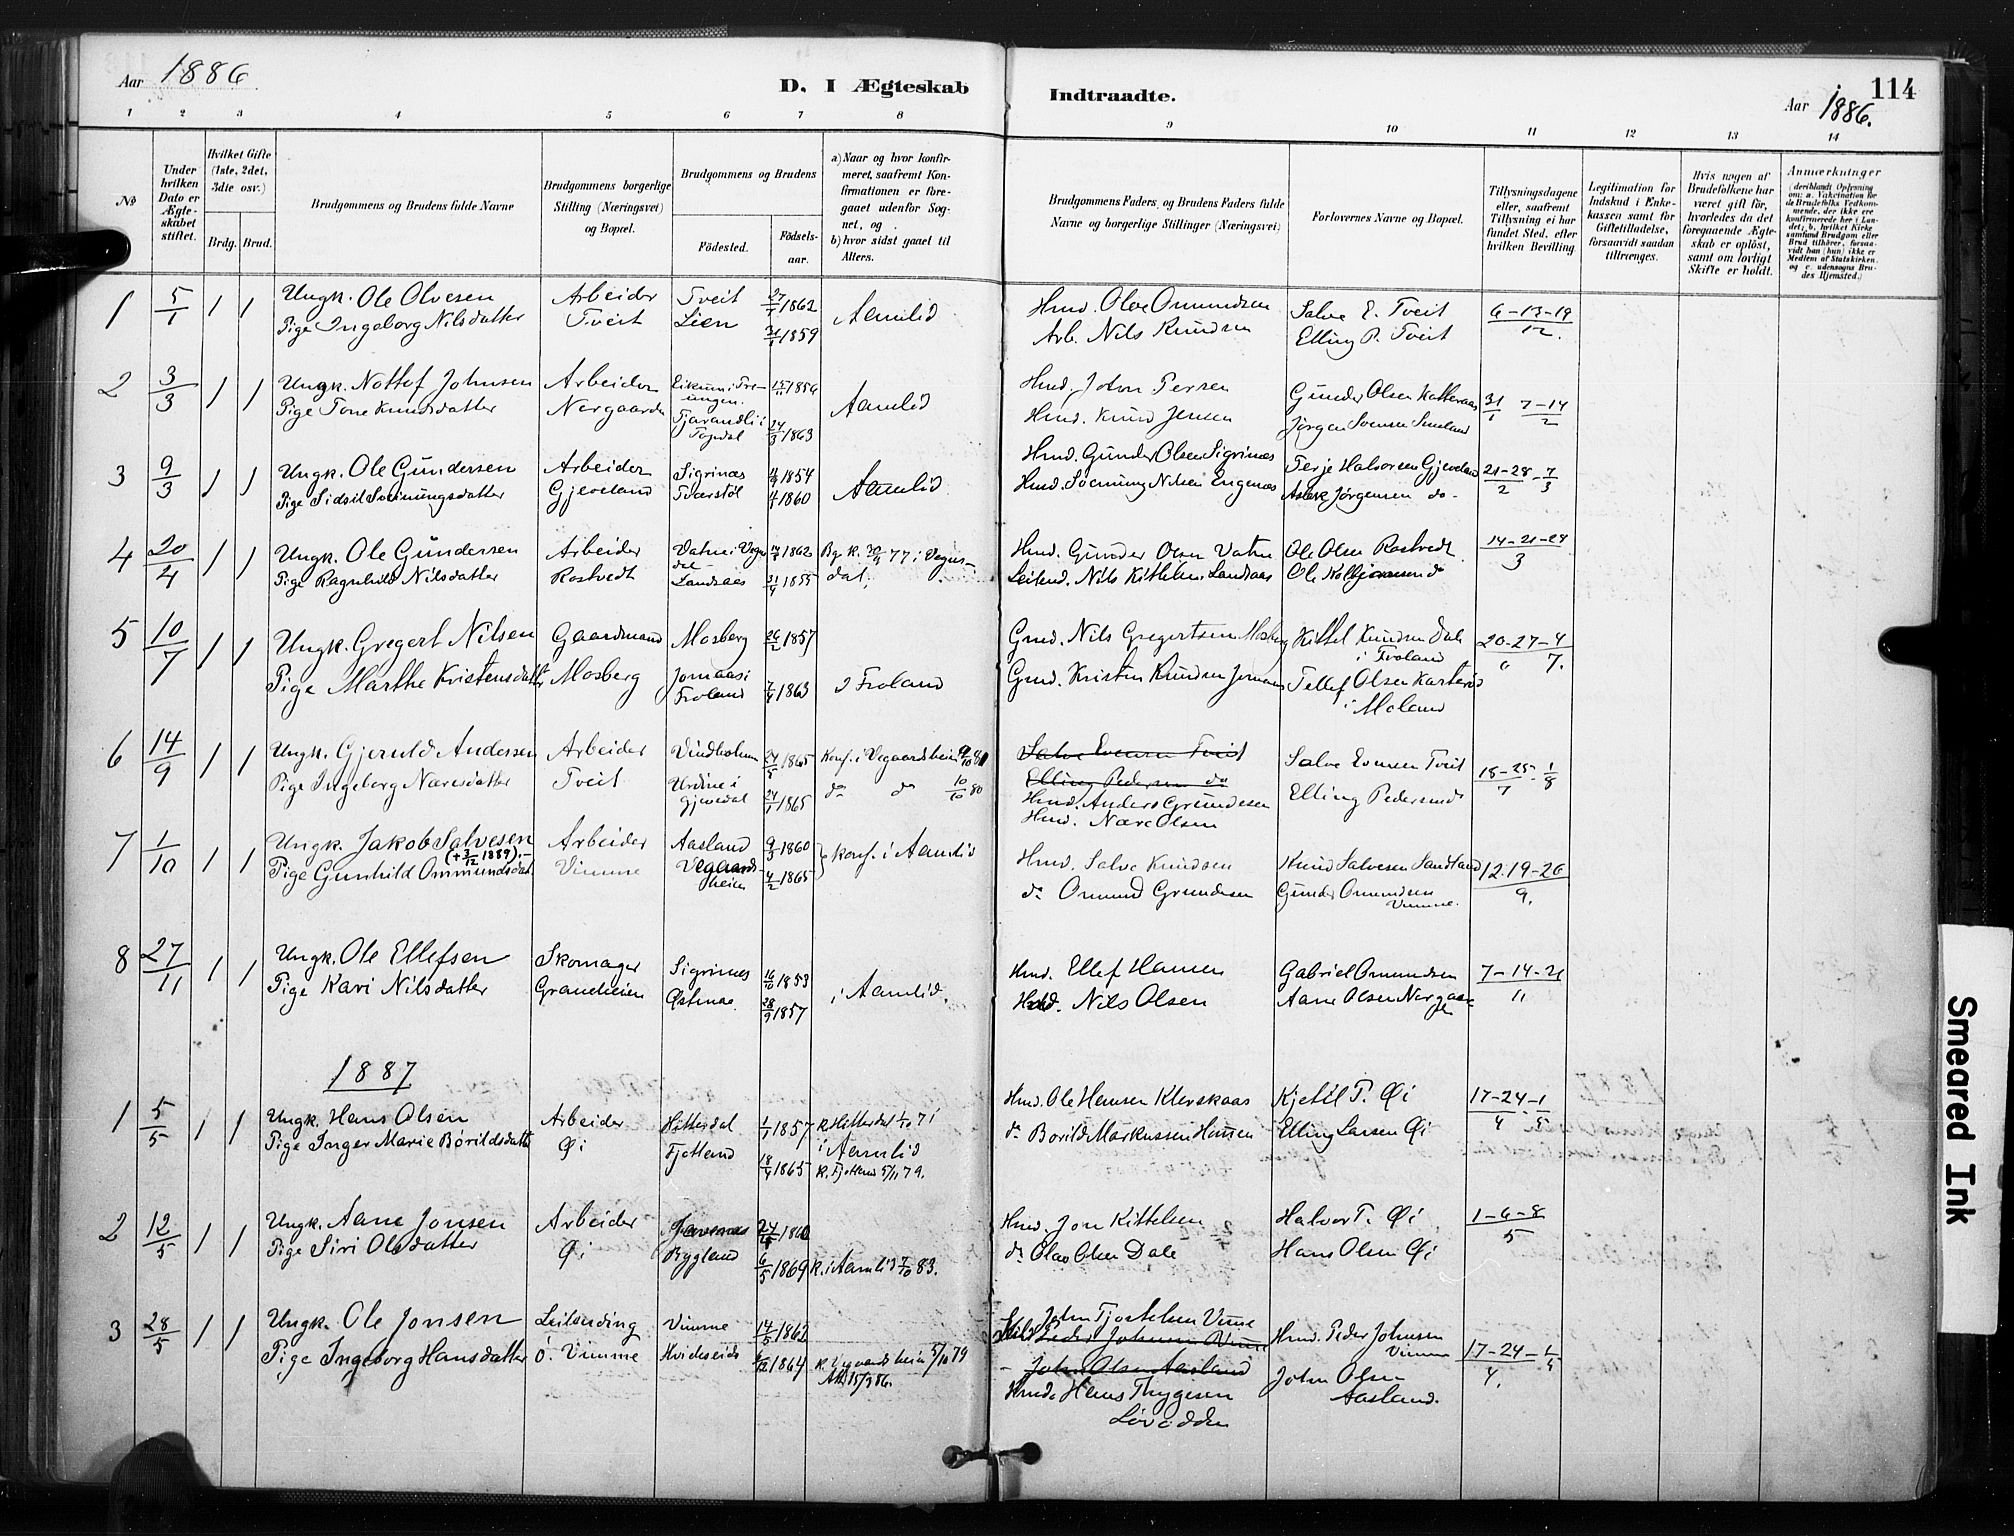 Aar 1886
D. I Ægteskab Indtraadte.
Aar 1886.
114
1 2 3 4 5 6 7 8 9 10 11 12 13 14
No
Under hvilken Dato er Ægteskabet stiftet.
Hvilket Gifte (1ste, 2det, 3die osv.)
Brdg. Brud.
Brudgommens og Brudens fulde Navne
Brudgommens borgerlige Stilling (Næringsvei) og Bopæl.
Brudgommens og Brudens
Fødested.
Fødselsaar.
a) Naar og hvor konfirmeret, saafremt Konfirmationen er foregaaet udenfor Sognet, og
b) hvor sidst gaaet til Alters.
Brudgommens Faders og Brudens Faders fulde Navne og borgerlige Stillinger (Næringsvei)
Forlovernes Navne og Bopæl.
Tillysningsdagene eller, saafremt Tillysning ei har fundet Sted, efter hvilken Bevilling.
Legitimation for Indskud i Enkekassen samt for Giftetilladelse, forsaavidt saadan tiltrænges.
Hvis nogen af Brudefolkene har været gift før, hvorledes da det foregaaende Ægteskab er opløst, samt om lovligt Skifte er holdt.
Anmærkninger
(deriblandt Oplysning om: a. Vakcination for de Brudefolks Vedkommende, der ikke ere konfirmerede her i Landet; b. hvilket Kirkesamfund Brudgom eller Brud tilhører, forsaavidt han (hun) ikke er Medlem af Statskirken, og c. udensogns Brudes Hjemsted.)
1 5/1 1 1 Ungk. Ole Olvesen Arbeider Tveit 27/7 1862 Aamlid Hmd. Olve Omundsen Salve E. Tveit 6-13-19/12.
Pige Ingeborg Nilsdatter Tveit Lien 1859 Arb. Nils Knudsen Elling P. Tveit
2 3/3 1 1 Ungk. Nottof Johnsen Arbeider Eikum i Treungen. 15/11 1856 Aamlid Hmd. John Persen Gunder Olsen 31/1 7-14/2
Pige Tone Knudsdatter Nergaarden i Topdal 24/3 1863 Hmd. Knud Jensen Jørgen Svensen
3 9/3 1 1 Ungk. Ole Gundersen Arbeider Sigrinæs 1854 Aamlid Hmd. Gunder Olsen Sigrinæs Terje Halvorsen Gjeveland 21-28/2 - 7/3
Pige Sidsil Sveinungsdatter Gjeveland Tværstøl 1860 Hmd. Sveinung Nilsen Engenæs Aslak Jørgensen do-
4 20/4 1 1 Ungk. Ole Gundersen Arbeider Vatne i Vegusdal 1862 Bg. k. 77 i Vegusdal. Hmd. Gunder Olsen Vatne Ole Olsen Rostvedt 14-21-28/3
Pige Ragnhild Nilsdatter Rostvedt Landaas 31/4 1855 Leilend. Nils Kittelsen Landaas Ole Kolbjørnsen do
5 10/7 1 1 Ungk. Gregert Nilsen Gaardmand Mosberg 26/2 1857 Gmd. Nils Gregertsen Mosberg Kittel Knudsen Dale i Froland 20-27-4/7.
Pige Marthe Kristensdatter Mosberg Jomaas i Froland 7/4 1863 i Froland Gmd. Kristen Knudsen Jomaas Tellef Olsen i Moland
6 14/9 1 1 Ungk. Gjeruld Andersen Arbeider Vindholmen 24/5 1865 Konf. i Vegaardsheien Salve Evensen Tveit Salve Evensen Tveit 18-25/7 - 1/8
Pige Ingeborg Næresdatter Tveit i Gjevedal 24/7 1865 do do 10/10 80 Elling Pedersen do Elling Pedersen do
Hmd. Anders Grundesen
Hmd. Nære Olsen
7 1/10 1 1 Ungk. Jakob Salvesen Arbeider Aasland 9/3 1860 konf. i Aamlid Hmd. Salve Knudsen Knud Salvesen Sandland 12.19-26/9.
(+ 3/12 1889).-
Pige Gunhild Ommundsdat. Vimme Vegaardsheien 4/2 1865 do Omund Grundesen Gunder Omundsen Vimme.
8 27/11 1 1 Ungk. Ole Ellefsen Skomager Sigrinæs 16/10 1853 i Aamlid. Hmd. Ellef Hansen Gabriel Omundsen 7-14-21/11
Pige Kari Nilsdatter Graneheien Østmoe 28/9 1857 Hmd. Nils Olsen Aane Olsen Nergaard
1887
1 5/5 1 1 Ungk. Hans Olsen Arbeider Hitterdal 1/7 1857 k. Hitterdal 1/10 71 Hmd. Ole Hansen Kleivskaas Kjetil T. Øi 17-24/4 - 1/5
Pige Inger Marie Borildsdatter Øi Fjotland 18/4 1865 i Aamlid k. Fjotland 5/11 79. do Borild Markussen Hansen Elling Larsen Øi
2 12/5 1 1 Ungk. Aane Jonsen Arbeider 24/4 1860 Hmd. Jon Kittelsen Halvor T. Øi 1-6-8/5
Pige Siri Olsdatter Øi Bygland 6/5 1869 k. i Aamlid 7/10 83. do Olav Olsen Dale Hans Olsen Øi
3 28/5 1 1 Ungk. Ole Jonsen Leilending Vimme 14/5 1862 John Tjostelsen Vimme Hmd. Peder Johnsen Vimme 17-24/4. - 1/5
Pige Ingeborg Hansdatter Ö. Vimme Hvideseid 1864 k. Vegaardsheien 5/10 79 Peder Johnsen Vimme
Alt. 15/7 86. - John Olsen Aasland John Olsen Aasland.
Hmd. Hans Thygesen Løvødden
Smeared Ink